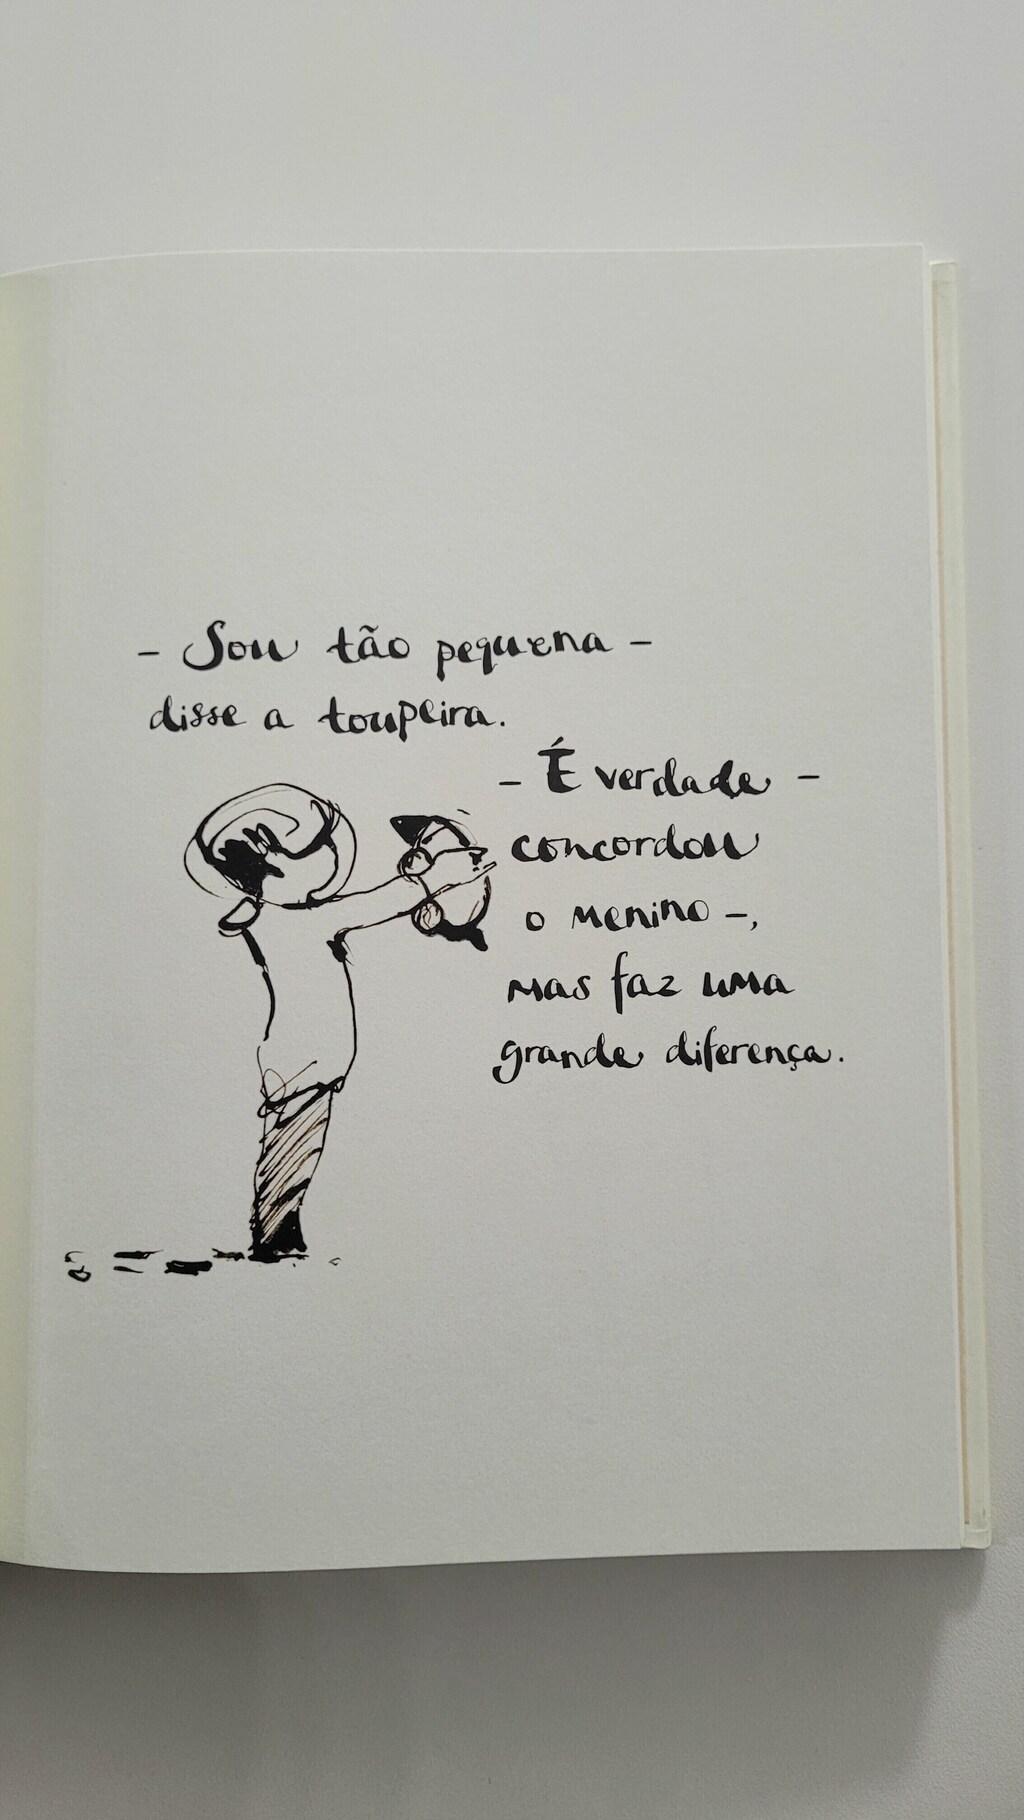 - Sou tão pequena -
disse a toupeira.
- É verdade -
concordou
o menino -,
mas faz uma
grande diferença.